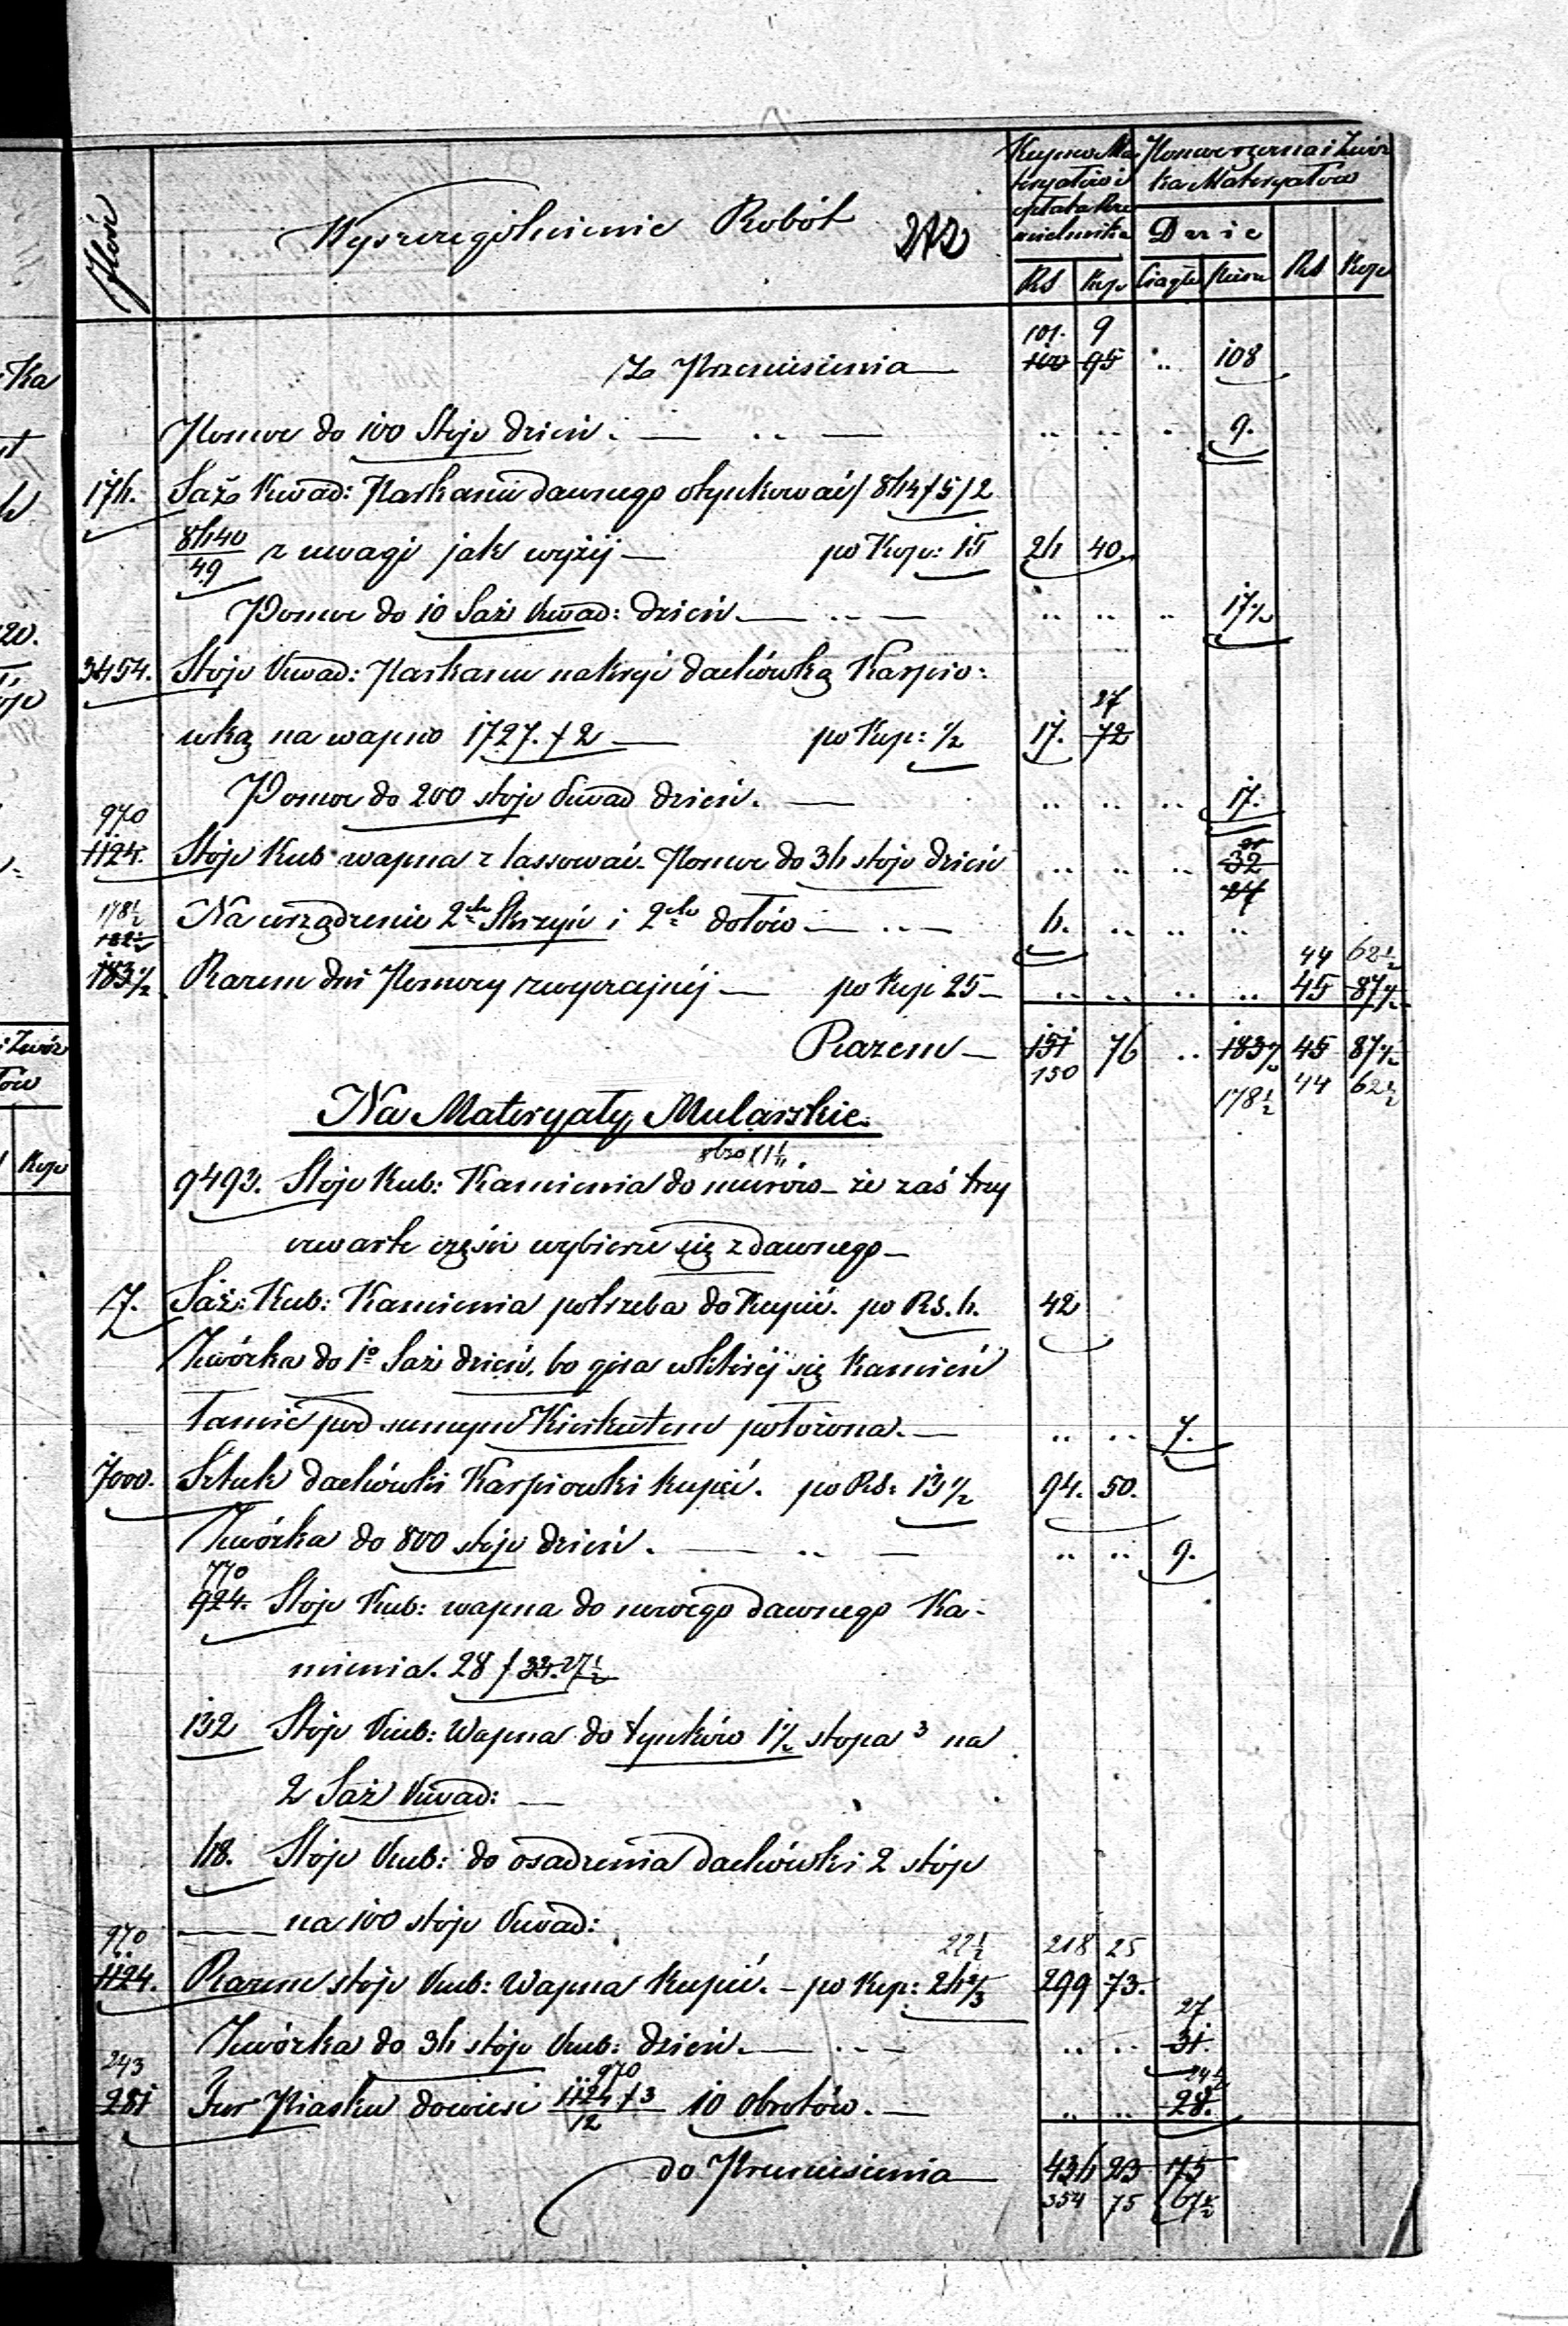 Ilość
Wyszczególnienie Robót 272
Kupno Ma
teryałów i
opłata Rze
mieślnika
Pomoc ręczna i Zwóz
ka Materyałów
Dnie
RS Kop Ciągłe Piesze RS Kop
101. 9
Z Przeniesienia 100 95 .. 108
Pomoc do 100 Stóp dzień. — .. — .. .. . 9.
176. Saż. Kwad: Parkanu dawnego otynkować / 864 / 5 / 2
8640
49 z uwagi jak wyżéj — po Kop: 15 26 40.
Pomoc do 10 Saż Kwad: dzień. — .. — .. .. .. 17½
3454. Stóp Kwad: Parkanu nakryć dachówką Karpio:
27
wką na wapno 1727. f 2 — po Kop: ½ 17. 72
Pomoc do 200 stóp Kwad dzień. — .. .. .. 17.
970
1124. Stóp Kub wapna zlassować. Pomoc do 36 stóp dzień .. .. .. 32
27
178½
182½ Na urządzenie 2ch Skrzyń i 2ch dołów — .. — 6. .. .. ..
44 62½
183½ Razem dni Pomocy zwyczajnéj — po Kop 25 — .. .. .. .. 45 87½
Razem — 151 76 .. 183½ 45 87½
150 178½ 44 62½
Na Materyały Mularskie.
9492. Stóp Kub: Kamienia do murów — że zaś trzy
czwarte części wybierze się z dawnego —
7. Saż: Kub: Kamienia potrzeba dokupić. po RS. 6. 42
Zwózka do 1o Saż dzień. bo góra w któréj się Kamień
łamie pod samym Kirkutem położona. — .. .. 7.
7000. Sztuk dachówki Karpiowki kupić. po RS: 13½ 94. 50.
Zwózka do 800 stóp dzień. — .. — .. .. 9.
770
924. Stóp Kub: wapna do nowego dawnego Ka-
mienia. 28 f 33. 27½
132 Stóp Kub: Wapna do tynków 1½ stopa 3 na
2 Saż Kwad: —
68. Stóp Kub: do osadzenia dachówki 2 stóp
— na 100 stóp Kwad:
970 22½ 218 25
1124. Razem stóp Kub: Wapna Kupić. — po Kop: 26⅔ 299 73.
27
Zwózka do 36 stóp Kub: dzień. — .. — .. .. 31.
243 970 24½
281 Fur Piasku dowieść 1124 f 3 10 obrotów. — .. .. 28.
12
do Przeniesienia 436 23 75
354 75 67½